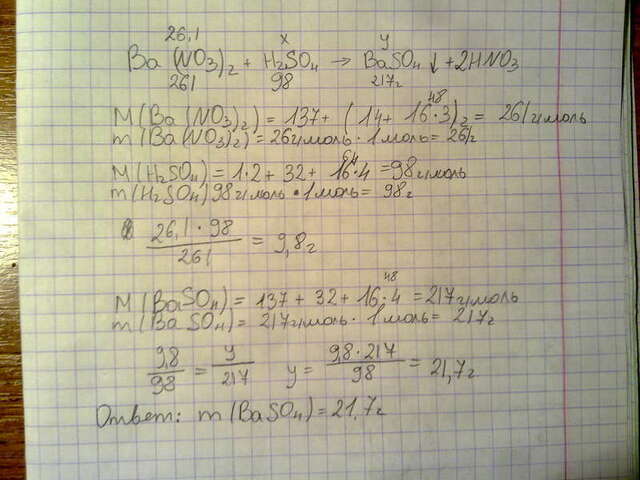 26,1 x y
Ba(NO3)2 + H2SO4 → BaSO4↓ + 2HNO3
261 98 217г
M(Ba(NO3)2) = 137 + (14 + 16·3)2 = 261 г/моль
48
m(Ba(NO3)2) = 261 г/моль · 1 моль = 261 г
M(H2SO4) = 1·2 + 32 + 16·4 = 98 г/моль
64
m(H2SO4) 98 г/моль · 1 моль = 98 г
26,1 · 98 / 261 = 9,8 г
M(BaSO4) = 137 + 32 + 16·4 = 217 г/моль
48
m(BaSO4) = 217 г/моль · 1 моль = 217 г
9,8/98 = y/217 y = 9,8·217/98 = 21,7 г
Ответ: m(BaSO4) = 21,7 г